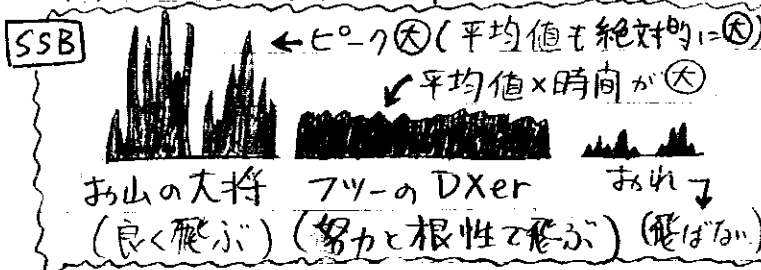 SSB
←ピーク大(平均値も絶対的に大)
平均値×時間が大
お山の大将 フツーのDXer おれ
(良く飛ぶ)(努力と根性で飛ぶ)(飛ばない)